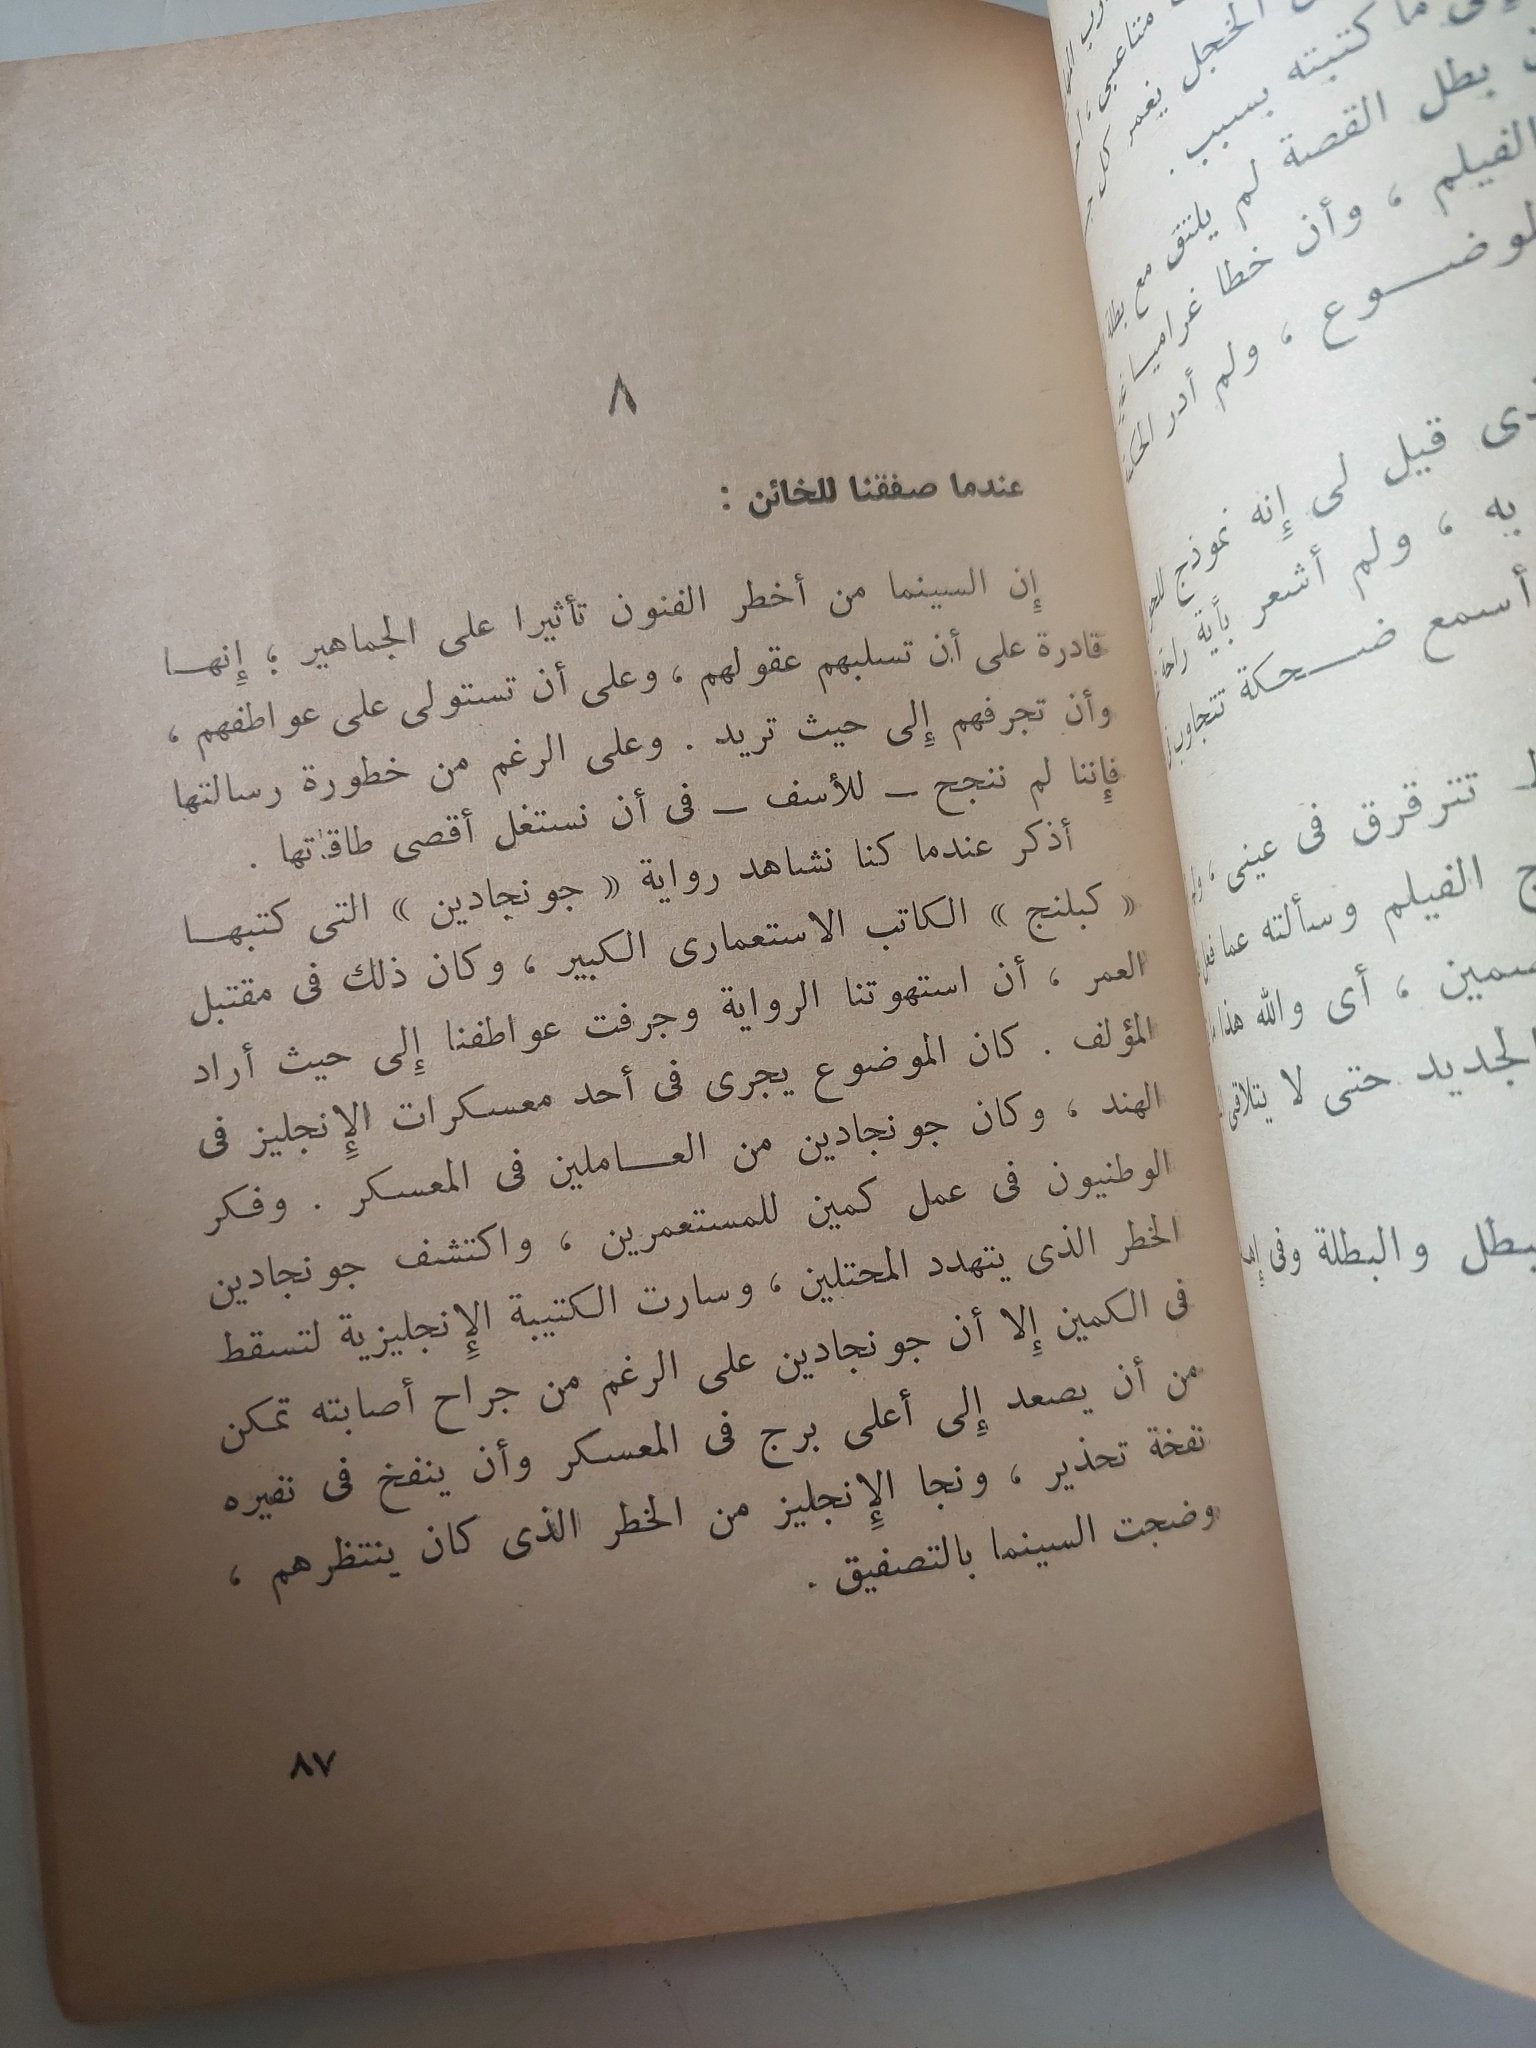 ٨
عندما صفقنا للخائن :
إن السينما من أخطر الفنون تأثيرا على الجماهير ؛ إنهـــا
قادرة على أن تسلبهم عقولهم ، وعلى أن تستولى على عواطفهم ،
وأن تجرفهم إلى حيث تريد . وعلى الرغم من خطورة رسالتها
فإننا لم ننجح ــ للأسف ــ فى أن نستغل أقصى طاقاتها .
أذكر عندما كنا نشاهد رواية « جونجادين » التى كتبهـــا
« كبلنج » الكاتب الاستعمارى الكبير ، وكان ذلك فى مقتبل
العمر ، أن استهوتنا الرواية وجرفت عواطفنا إلى حيث أراد
المؤلف . كان الموضوع يجرى فى أحد معسكرات الإنجليز فى
الهند ، وكان جونجادين من العـــاملين فى المعسكر . وفكر
الوطنيون فى عمل كمين للمستعمرين ، واكتشف جونجادين
الخطر الذى يتهدد المحتلين ، وسارت الكتيبة الإنجليزية لتسقط
فى الكمين إلا أن جونجادين على الرغم من جراح أصابته تمكن
من أن يصعد إلى أعلى برج فى المعسكر وأن ينفخ فى نفيره
نفخة تحذير ، ونجا الإنجليز من الخطر الذى كان ينتظرهم ،
وضجت السينما بالتصفيق .
٨٧
الخجل يغمر كل
ما كتبته بسبب .
بطل القصة لم يلتق مع بطلة
الفيلم ، وأن خطا غراميا
ولم أدر
قيل لى إنه نموذج
به ، ولم أشعر بأية راحة
أسمع ضـــحكة تتجاوب
تترقرق فى عينى ،
الفيلم وسألته عما
، أى والله هذا
الجديد حتى لا يتلاقى
والبطلة وفى